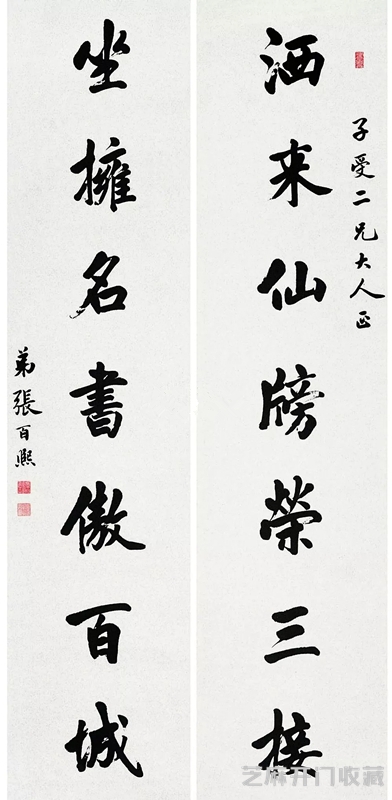 子受二兄大人正
洒来仙牓榮三接
坐擁名書傲百城
弟張百熙
艺麻开门收藏